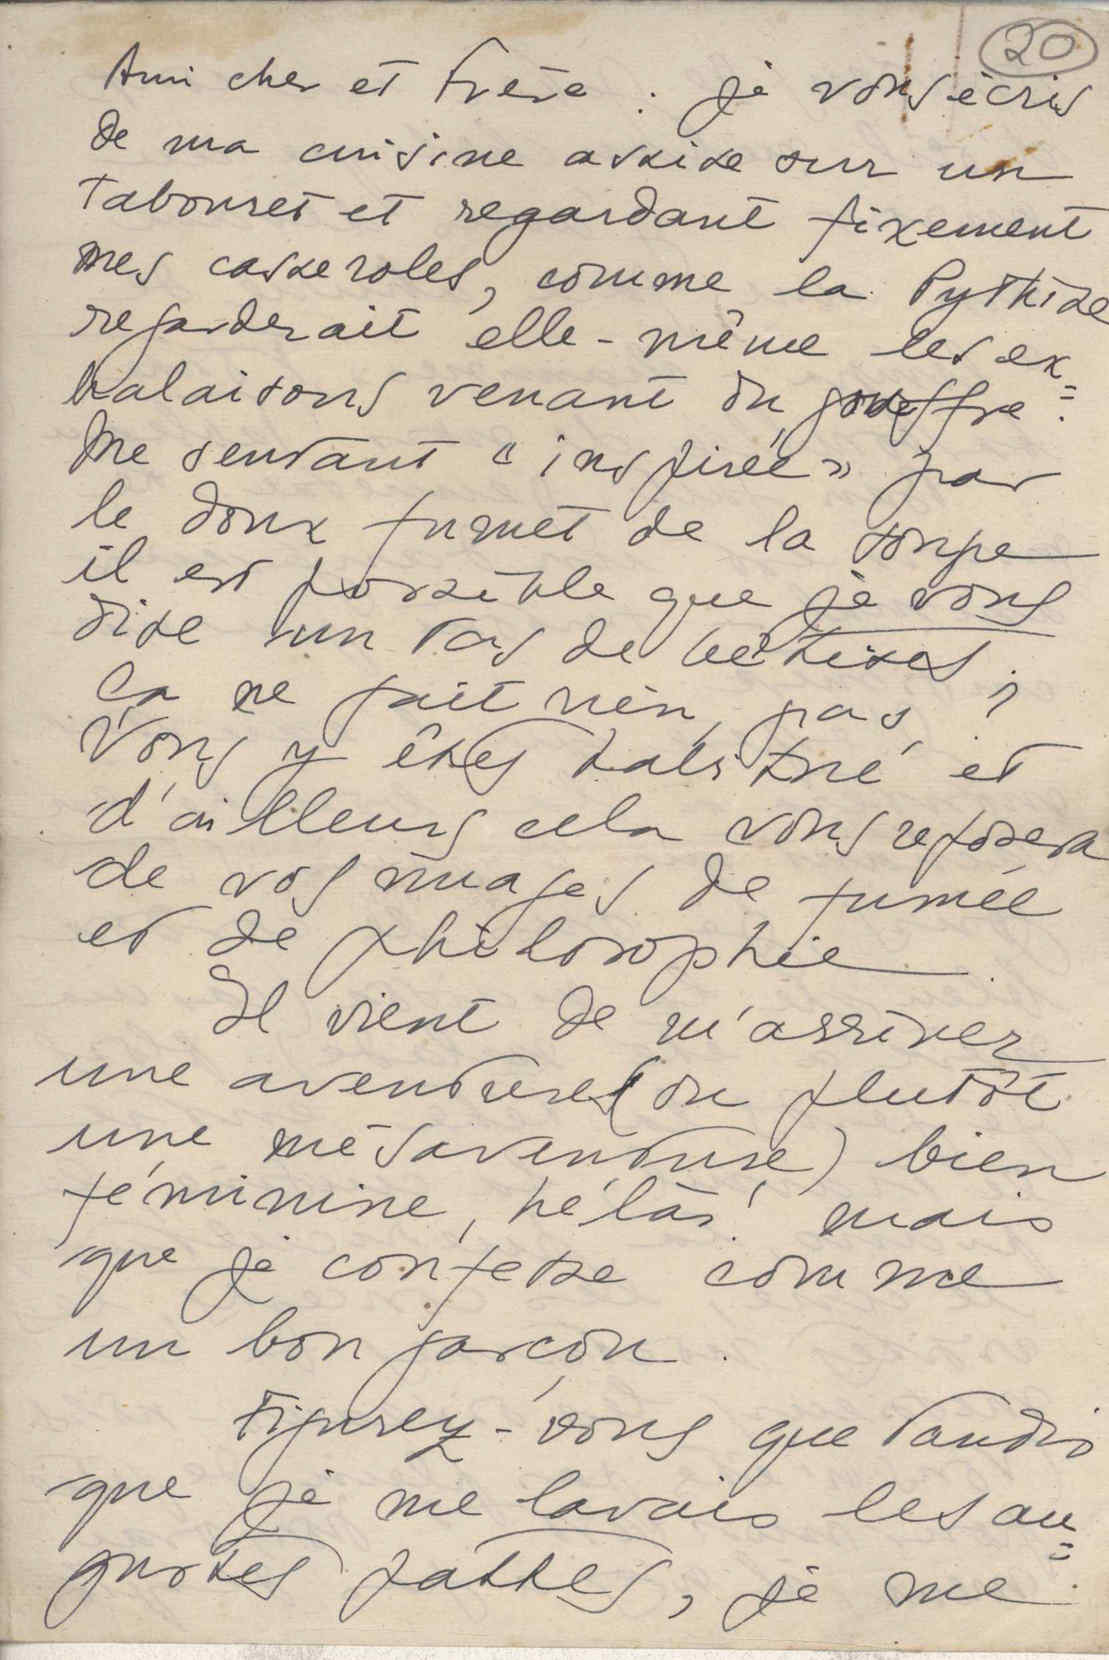 20
Ami cher et frère : je vous écris
de ma cuisine assise sur un
tabouret et regardant fixement
mes casseroles, comme la Pythise
regarderait elle-même les ex=
halaisons venant du gouffre.
Me sentant « inspirée » par
le doux fumet de la soupe
il est possible que je vous
dise un tas de bêtises ;
ça ne fait rien, pas ?
Vous y êtes habitué et
d'ailleurs cela vous reposera
de vos nuages de fumée
et de philosophie.
Il vient de m'arriver
une aventure (ou plutôt
une mésaventure) bien
féminine, hélas ! mais
que je confesse comme
un bon garçon.
Figurez-vous que tandis
que je me lavais les au=
gustes pattes, je me